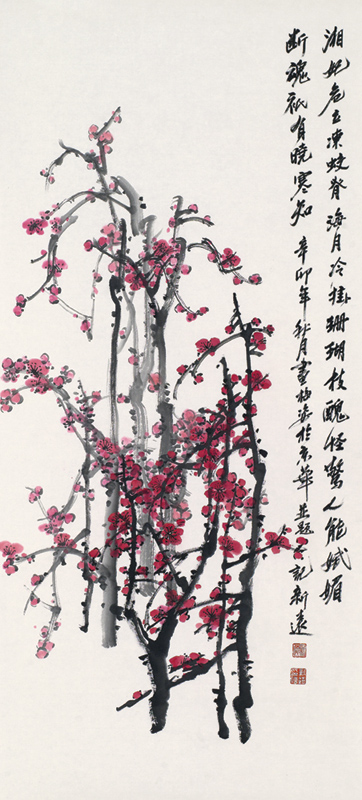 湘妃危立凍蛟脊海月冷掛珊瑚枝醜怪驚人能嫵媚
断魂祇有曉寒知 辛卯年秋月畫梅於京華並題記新遠